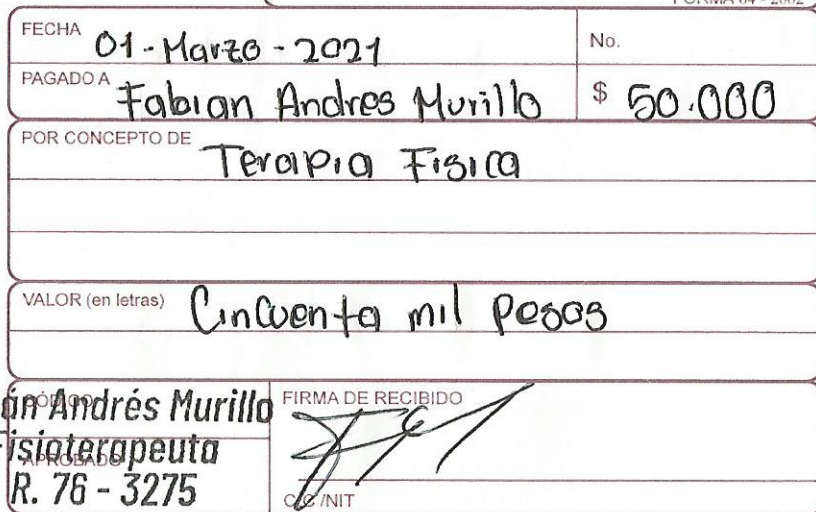 FORMA 04 - 2002
FECHA 01-Marzo-2021
No.
PAGADO A Fabian Andres Murillo
$ 50.000
POR CONCEPTO DE Terapia Fisica
VALOR (en letras) Cincuenta mil pesos
CÓDIGO
án Andrés Murillo
Fisioterapeuta
APROBADO
R. 76 - 3275
FIRMA DE RECIBIDO
C.C./NIT